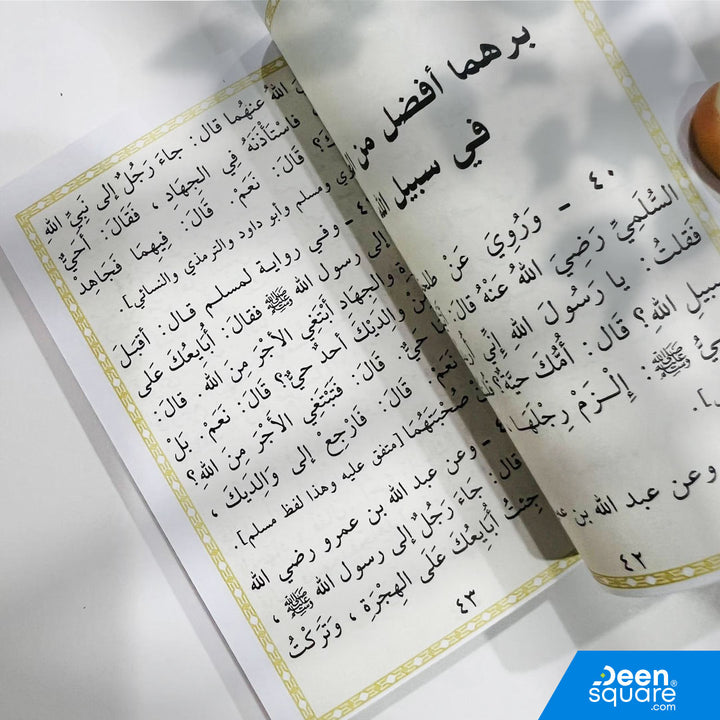 برهما أفضل من
في سبيل الله
٤٠ - وَرُوِيَ عَنْ
السُّلَمِيِّ رَضِيَ اللهُ عَنْهُ قَالَ:
فَقُلتُ: يا رَسُولَ اللهِ إِنِّي
سبيل اللهِ؟ قَالَ: أُمُّكَ حَيَّةٌ؟
ﷺ: إِلْزَمْ رِجْلَهَا
وعن عبد الله بن
٤٢
اللهُ عنهُما قال: جاءَ رَجُلٌ إلى نَبِيِّ اللهِ
فاسْتَأْذَنَهُ فِي الجِهَادِ ، فَقَالَ: أَحَيٌّ
قَالَ: نَعَمْ. قَالَ: فِيهِمَا فَجَاهِدْ
ومسلم وأبو داود والترمذي والنسائي].
- وفي رواية لمسلم قال: أَقْبَلَ
إلى رسول الله ﷺ فقالَ: أُبَايِعُكَ عَلى
والجِهادِ أَبْتَغِي الأَجْرَ مِنَ اللهِ. قَالَ:
مِنْ والدَيْكَ أحدٌ حيٌّ؟ قَالَ: نَعَمْ. بَلْ
حَيٌّ. قَالَ: فَتَبْتَغِي الأَجْرَ مِنَ اللهِ؟
نَعَمْ. قَالَ: فَارْجِعْ إلى وَالِدَيكَ ،
صُحْبَتَهُمَا [متفق عليه وهذا لفظ مسلم].
- وعن عبد الله بن عمرو رضي الله
قَالَ: جَاءَ رَجُلٌ إلى رسول الله ﷺ ،
جِئْتُ أُبَايِعُكَ عَلَى الهِجْرَةِ ، وَتَرَكْتُ
٤٣
Deen
square®
.com